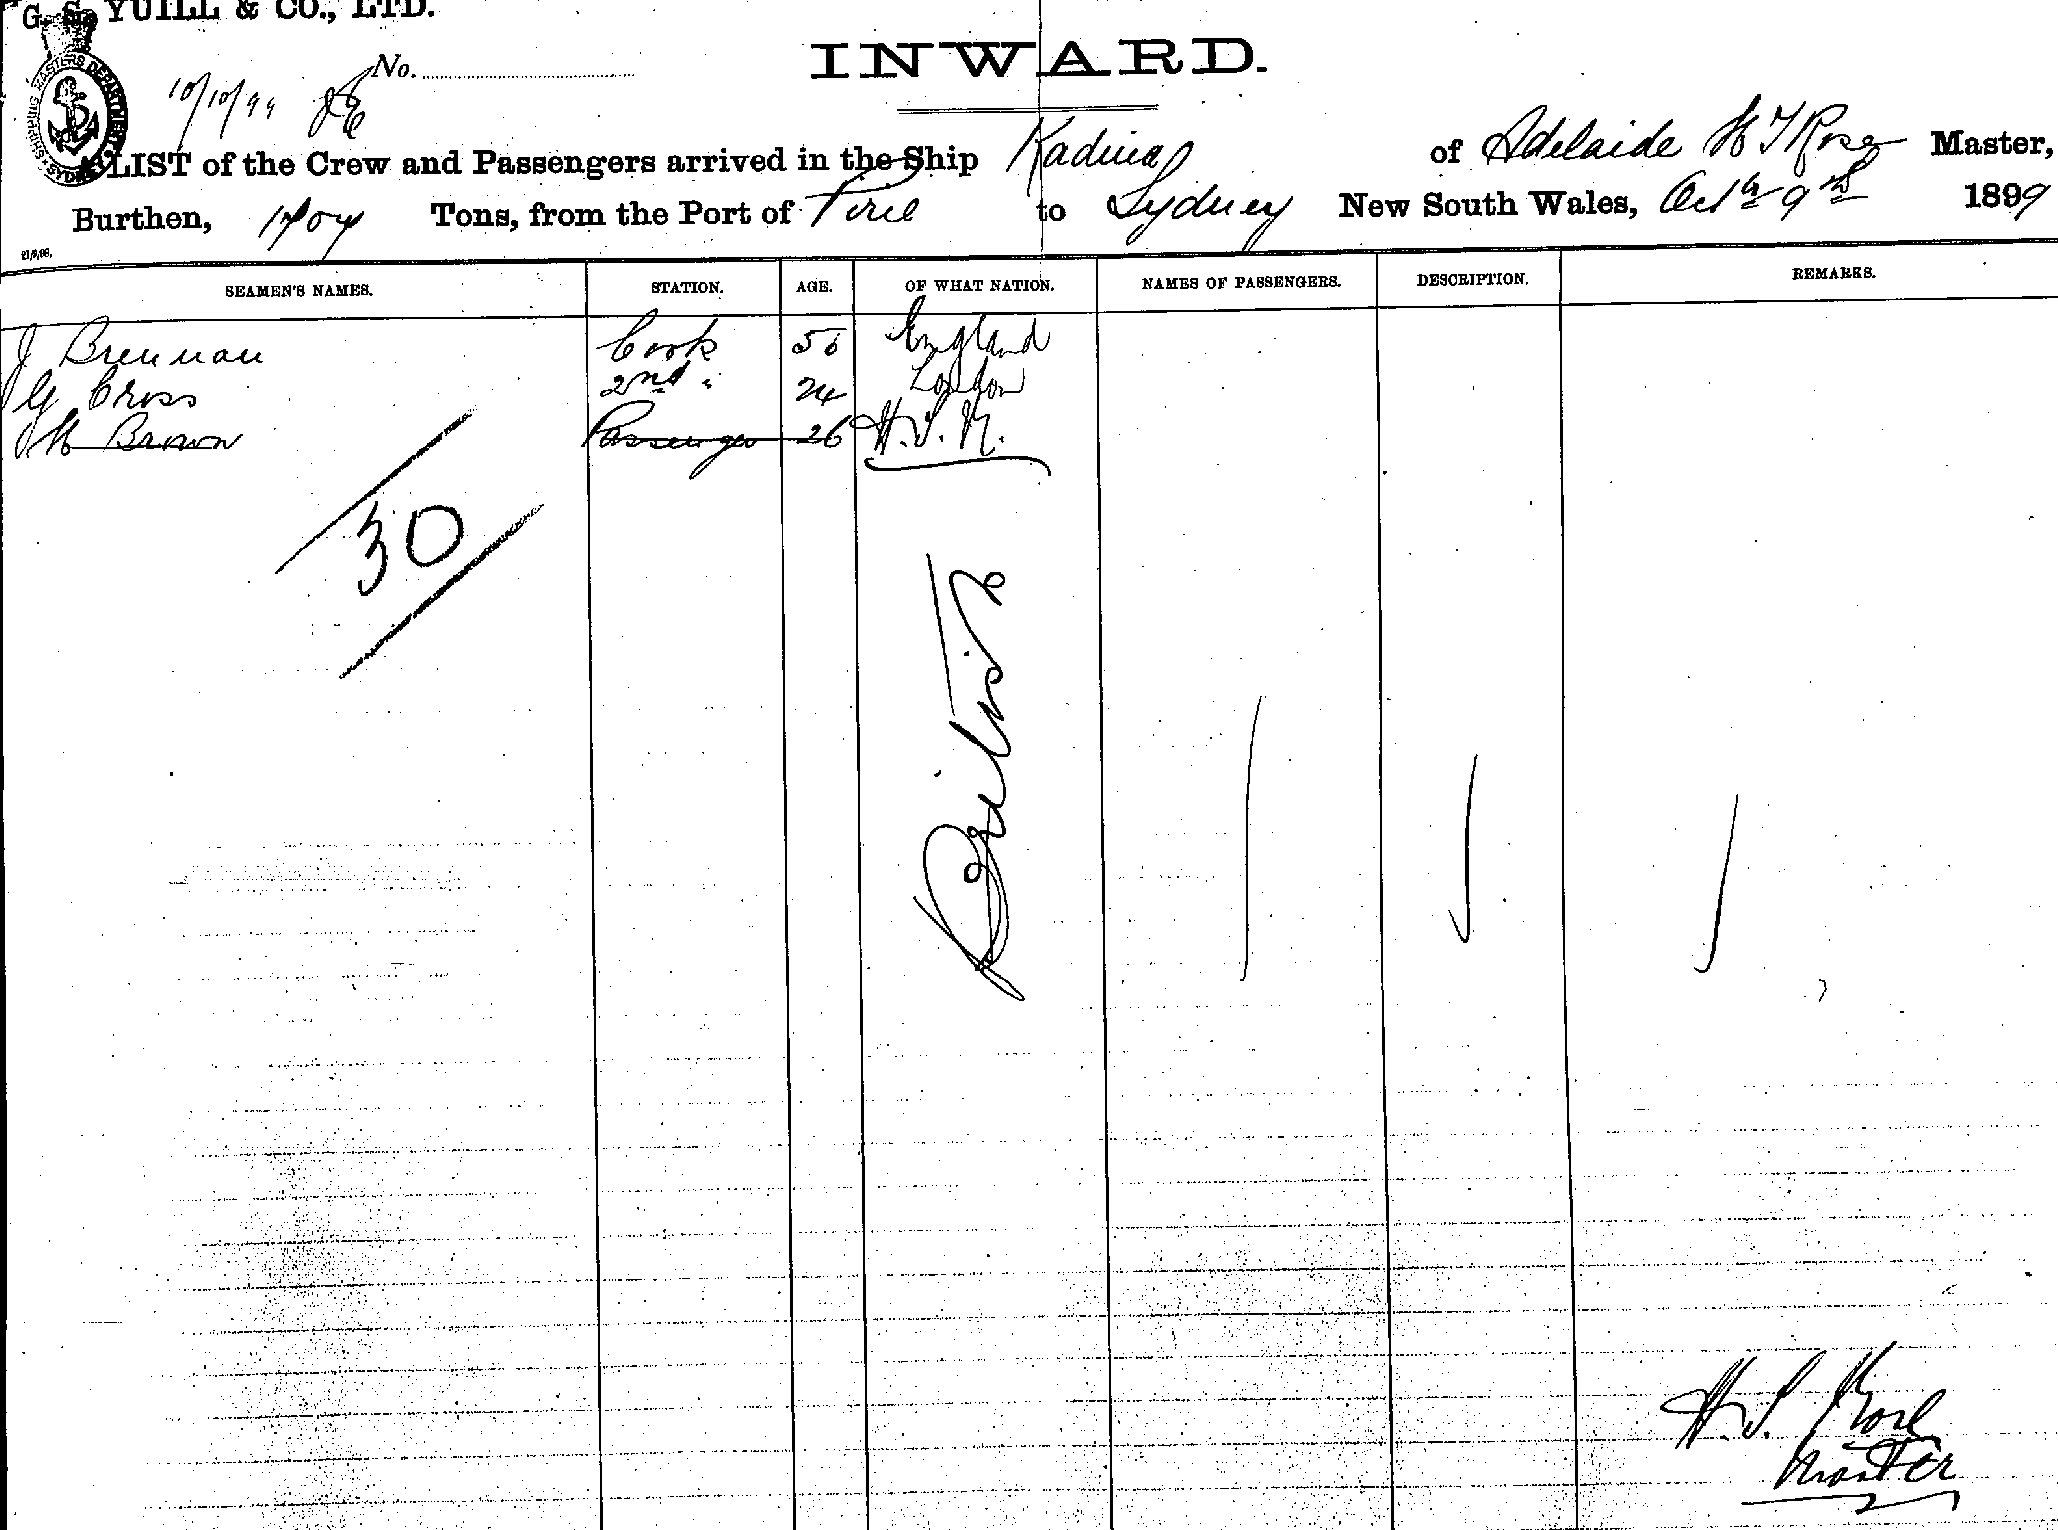 G. S. YUILL & CO., LTD.
No.
INWARD.
10/10/99
SHIPPING MASTERS DEPARTMENT SYDNEY
A LIST of the Crew and Passengers arrived in the Ship Kadina of Adelaide H T Rose Master,
Burthen, Tons, from the Port of Pirie to Sydney New South Wales, Oct 9th 1899
21/9/98.
SEAMEN'S NAMES. STATION. AGE. OF WHAT NATION. NAMES OF PASSENGERS. DESCRIPTION. REMARKS.
J Brennan Cook 56 England
G Cross 2nd " 24 London
H Brown Passenger 26
30
British
Rose
Master